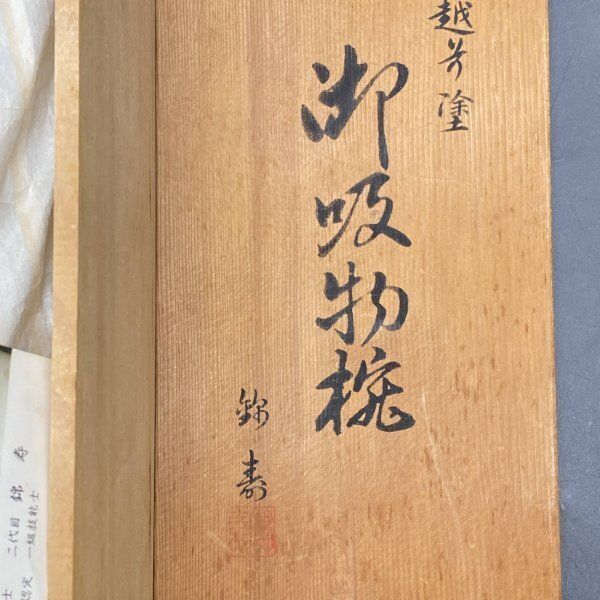 越前塗
御吸物椀
錦壽
二代目 錦寿
認定 一級技能士
士